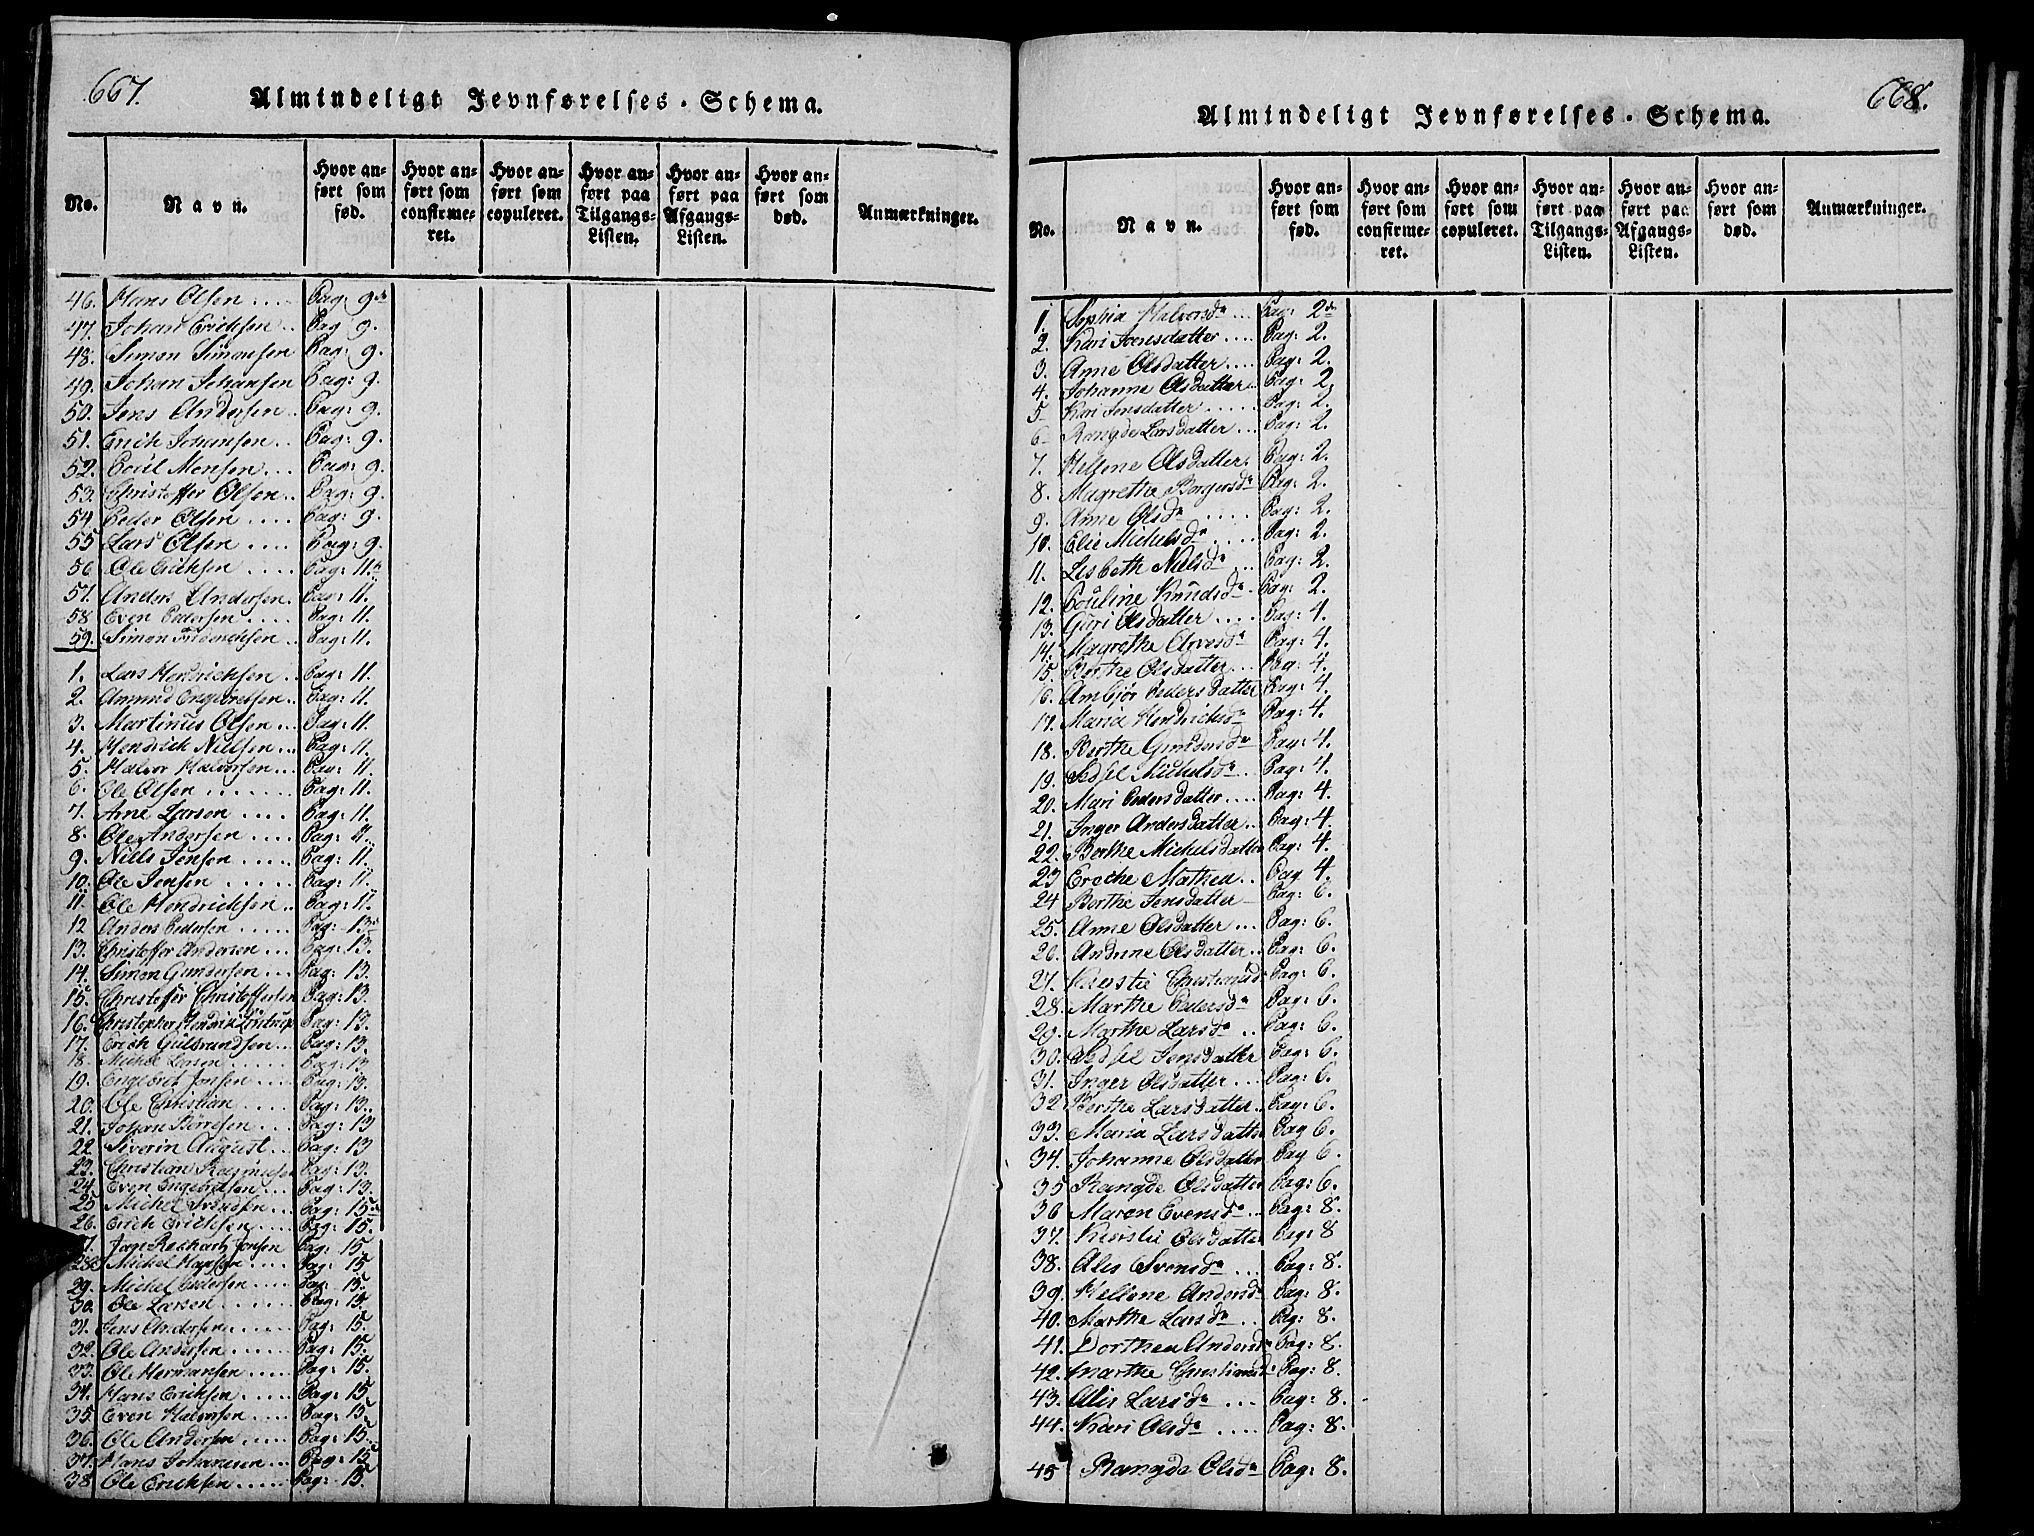 667.
Almindeligt Jevnførelses-Schema.
No.
Navn.
Hvor an-
ført som
fød.
Hvor an-
ført som
confirme-
ret.
Hvor an-
ført som
copuleret.
Hvor an-
ført paa
Tilgangs-
Listen.
Hvor an-
ført paa
Afgangs-
Listen.
Hvor an-
ført som
død.
Anmærkninger.
46. Hans Olsen .... Pag: 9de
47. Johan Erichsen .. Pag: 9.
48. Simon Simonsen Pag: 9.
49. Johan Johansen Pag: 9.
50. Jens Andersen .. Pag: 9.
51. Erich Johansen .. Pag: 9.
52. Poul Monsen ... Pag: 9.
53. Christoffer Olsen .. Pag: 9.
54. Peder Olsen .... Pag: 9.
55 Lars Olsen .... Pag: 9.
56 Ole Erichsen .... Pag: 11.
57. Anders Andersen. Pag: 11.
58 Even Pedersen .... Pag: 11.
59. Simon Fridrichsen .. Pag: 11.
1. Lars Hendrichsen .. Pag: 11.
2. Amund Engebretsen .. Pag: 11.
3. Martinus Olsen ... Pag: 11.
4. Hendrich Nielsen ... Pag: 11.
5. Halvor Halvorsen ... Pag: 11.
6. Ole Olsen ....... Pag: 11.
7. Arne Larsen .... Pag: 11.
8. Ole Andersen .... Pag: 11.
9. Niels Jensen ..... Pag: 11.
10. Ole Jensen ..... Pag: 11.
11. Ole Hendrichsen .. Pag: 11.
12 Anders Pedersen ..... Pag: 13
13. Christoffer Andersen ... Pag: 13.
14. Simon Gundersen ... Pag: 13.
15. Christoffer Christoffersen Pag: 13.
16. Christopher Hendrik Pag: 13.
17. Erich Gulbrandsen ... Pag: 13.
18. Michel Larsen ...... Pag: 13.
19. Engebret Jonsen .... Pag: 13.
20. Ole Christian .... Pag: 13.
21. Johan Børresen ... Pag: 13
22. Siverin August ... Pag: 13
23. Christian Rasmusen Pag: 13.
24. Even Engebretsen ... Pag: 13.
25 Michel Svendsen ... Pag: 15de
26. Erich Erichsen .... Pag: 15.
27. Jan Jonsen Pag: 15
28. Michel Hansen .... Pag: 15
29. Michel Pedersen .... Pag: 15.
30. Ole Larsen ...... Pag: 15.
31. Jens Andersen ..... Pag: 15.
32. Ole Andersen ..... Pag: 15.
33. Ole Hermansen ... Pag: 15.
34. Hans Erichsen .... Pag: 15.
35. Even Halvorsen .... Pag: 15.
36. Ole Andersen ..... Pag: 15.
37. Hans Johansen ... Pag: 15
38. Ole Erichsen ..... Pag: 15.
668.
Almindeligt Jevnførelses-Schema.
No.
Navn.
Hvor an-
ført som
fød.
Hvor an-
ført som
confirme-
ret.
Hvor an-
ført som
copuleret.
Hvor an-
ført paa
Tilgangs-
Listen.
Hvor an-
ført paa
Afgangs-
Listen.
Hvor an-
ført som
død.
Anmærkninger.
1. Sophia Halvorsdr ... Pag: 2de
2. Kari Jensdatter .... Pag: 2.
3. Anne Olsdatter .... Pag: 2.
4. Johanne Olsdatter. Pag: 2.
5 Kari Jensdatter ..... Pag: 2.
6 Rangde Larsdatter ... Pag: 2.
7. Hellene Olsdatter. Pag: 2.
8. Magrethe Borgersdr Pag: 2.
9. Anne Olsdr ..... Pag: 2.
10. Elie Michelsdr .... Pag: 2.
11. Lisbeth Nielsdr ... Pag: 2.
12. Pouline Knudsdr. Pag: 2.
13. Guri Olsdatter .... Pag: 4.
14. Magrethe Arvesdr Pag: 4.
15. Berthe Olsdatter ... Pag: 4.
16. Ambjør Pedersdatter Pag: 4.
17. Maria Hendrichsdr Pag: 4.
18. Berthe Gundersdr Pag: 4.
19. Sidsel Michelsdr .. Pag: 4.
20. Mari Pedersdatter .... Pag: 4.
21. Inger Andersdatter .. Pag: 4.
22. Berthe Michelsdatter Pag: 4.
23 Grethe Mathea .. Pag 4.
24 Berthe Jensdatter Pag: 6.
25. Anne Olsdatter ... Pag: 6.
26. Andrine Olsdatter .. Pag: 6.
27. Kierstie Christiansd Pag: 6.
28. Marthe Pedersdr Pag: 6.
29. Marthe Larsdr .. Pag: 6.
30. Sidsel Jensdatter Pag: 6.
31. Inger Olsdatter ... Pag: 6.
32 Berthe Larsdatter .. Pag: 6.
33. Maria Larsdatter Pag 6.
34. Johanne Olsdatter Pag 6.
35 Rangde Olsdatter Pag: 6.
36 Maren Evensdr .. Pag: 8.
37. Kierstie Olsdatter Pag: 8
38. Alis Svensdr ... Pag: 8.
39. Hellene Andersdr Pag: 8.
40. Marthe Larsdr .. Pag: 8.
41. Dorthea Andersdr Pag: 8.
42. Marthe Christiansdr Pag: 8.
43. Alis Larsdr ... Pag: 8.
44. Kari Olsdr .... Pag: 8.
45 Rangde Olsdr Pag: 8.